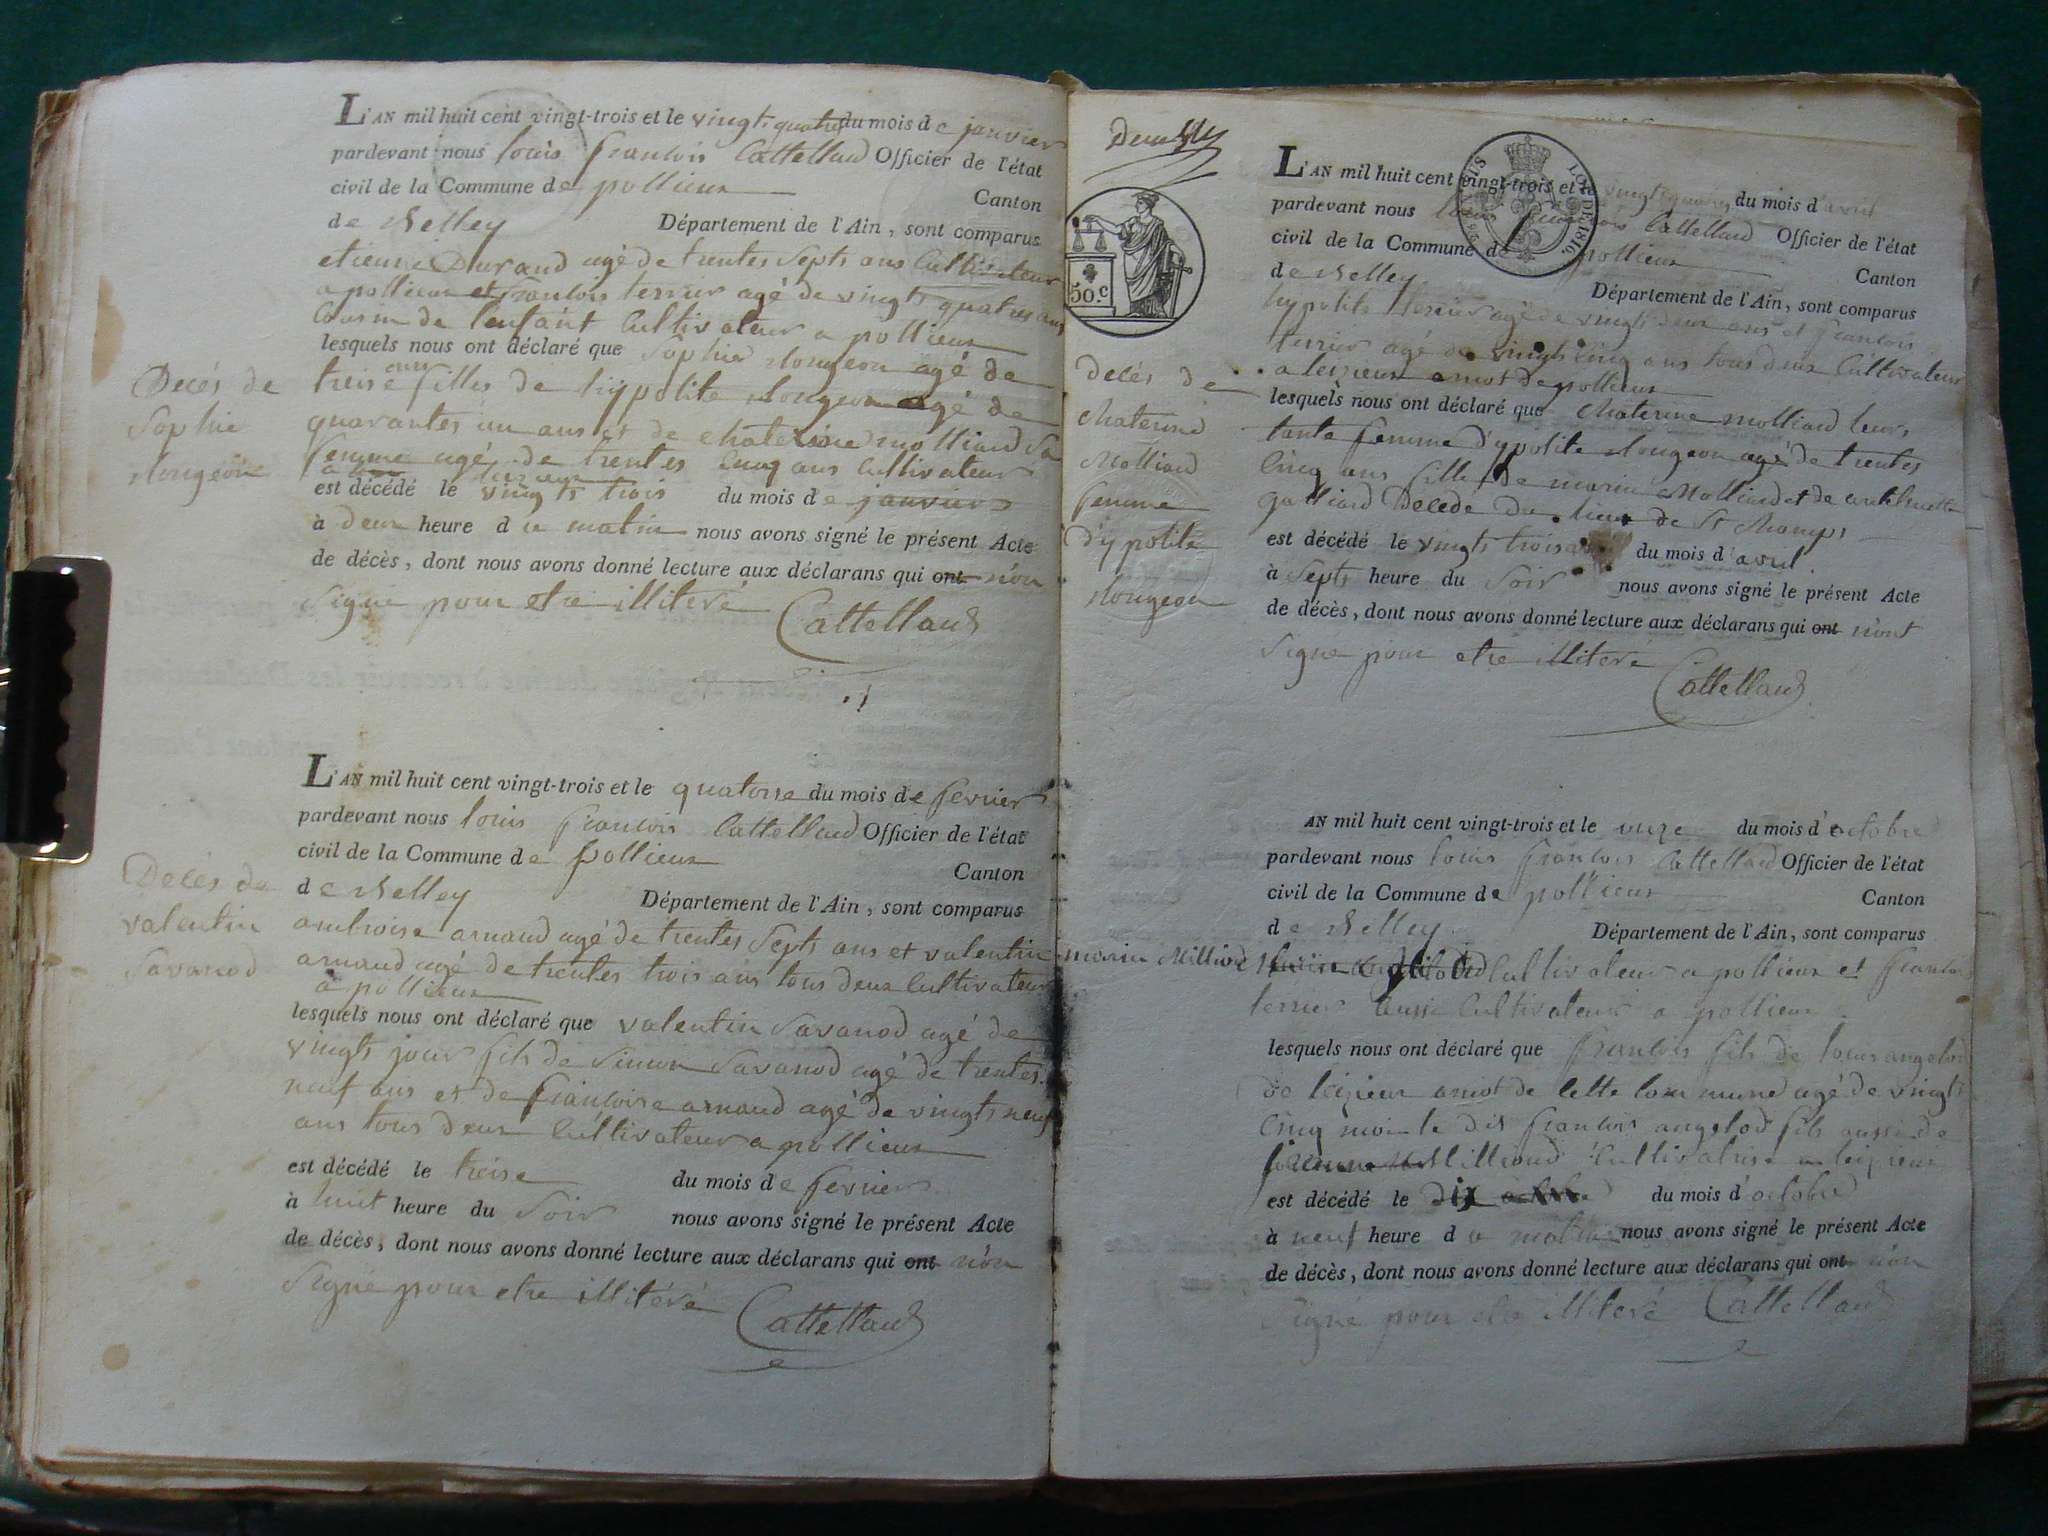 L'AN mil huit cent vingt-trois et le vingt quatre du mois de janvier
pardevant nous louis francois Cattelland Officier de l'état
civil de la Commune de pollieux
Canton
de Belley Département de l'Ain, sont comparus
etienne Durand agé de trentes septs ans Cultivateur
a pollieux et francois terrier agé de vingts quatres ans
Cousin de l'enfant Cultivateur a pollieux
lesquels nous ont déclaré que Sophie Mougeon agé de
treise ans filles de hypolite Mougeon agé de
quarantes un ans et de Chaterine Molliard Sa
femme agé de trentes Cinq ans Cultivateur
est décédé le vingts trois du mois de janvier
à deux heure du matin nous avons signé le présent Acte
de décès, dont nous avons donné lecture aux déclarans qui ont n'on
Signe pour etre illiteré Cattelland
Decés de
Sophie
Mougeon
L'AN mil huit cent vingt-trois et le quatorse du mois de fevrier
pardevant nous louis francois Cattelland Officier de l'état
civil de la Commune de pollieux
Canton
de Belley Département de l'Ain, sont comparus
ambroise arnaud agé de trentes Septs ans et valentin
arnaud agé de trentes trois ans tous deux Cultivateur
a pollieux
lesquels nous ont déclaré que valentin Savanod agé de
vingts jour fils de Simon Savanod agé de trentes
neuf ans et de francoise arnaud agé de vingts neuf
ans tous deux Cultivateur a pollieux
est décédé le treise du mois de fevrier
à huit heure du Soir nous avons signé le présent Acte
de décès, dont nous avons donné lecture aux déclarans qui ont n'on
Signé pour etre illitéré Cattelland
Decés de
valentin
Savanod
50.c
LOI DE 1816
L'AN mil huit cent vingt-trois et le vingt quatre du mois d'avril
pardevant nous louis francois Cattelland Officier de l'état
civil de la Commune de pollieux
Canton
de Belley Département de l'Ain, sont comparus
hypolite terrier agé de vingts deux ans et francois
terrier agé de vingts cinq ans tous deux Cultivateur
a leizieux amot de pollieux
lesquels nous ont déclaré que Chaterine molliard leur
tante femme d'ypolite Mougeon agé de trentes
Cinq ans fille de marin Molliard et de
galliard Decede du lieux de St Champs
est décédé le vingts trois du mois d'avril
à Septs heure du Soir nous avons signé le présent Acte
de décès, dont nous avons donné lecture aux déclarans qui ont n'ont
Signe pour etre illitere Cattelland
decés de
Chaterine
Molliard
femme
d'ypolite
Mougeon
AN mil huit cent vingt-trois et le onze du mois d'octobre
pardevant nous louis francois Cattelland Officier de l'état
civil de la Commune de pollieux
Canton
de Belley Département de l'Ain, sont comparus
marin Milliard Cultivateur a pollieux et francois
terrier aussi Cultivateur a pollieux
lesquels nous ont déclaré que francois fils de louis angelod
de leizieux amot de Cette Commune agé de vingts
Cinq moi le dit francois angelod fils aussi de
Milliard Cultivatrise a leizieux
est décédé le dix du mois d'octobre
à neuf heure du matin nous avons signé le présent Acte
de décès, dont nous avons donné lecture aux déclarans qui ont n'on
Signé pour etre illiteré Cattelland